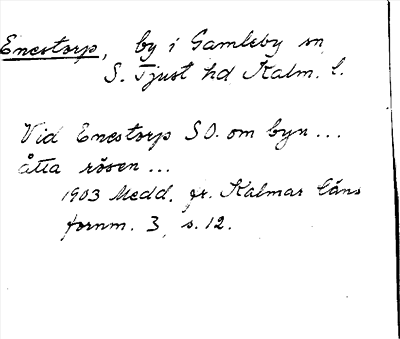 Enestorp, by i Gamleby sn
S. Tjust hd Kalm. l.
Vid Enestorp SO. om byn...
åtta rösen...
1903 Medd. fr. Kalmar läns
fornm. 3, s. 12.